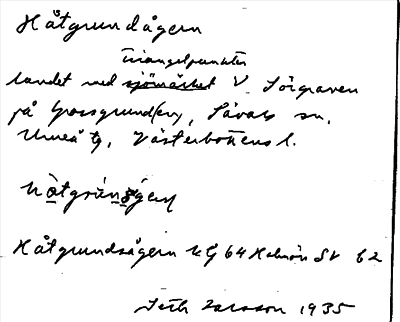 Håtgrundågern
triangelpunkten
landet med sjömärket V Sörgraven
på Grossgrund(en), Sävars sn,
Umeå tg, Västerbottens l.
Håtgrundsågern KG 64 Holmön SV 62
Seth Larsson 1935